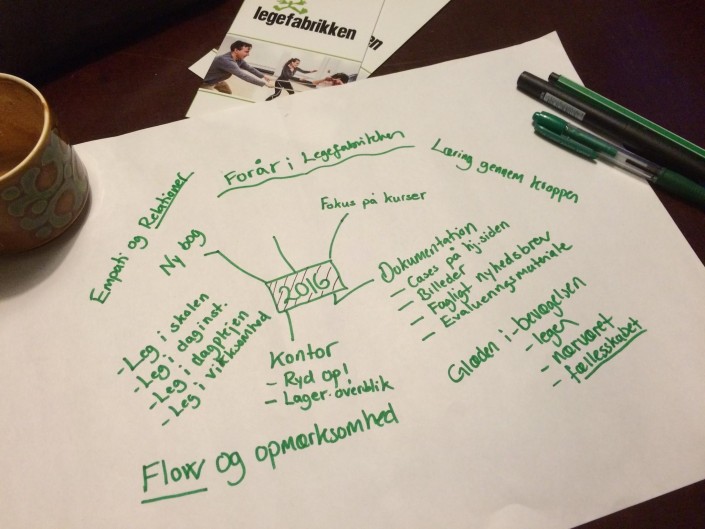 legefabrikken
Forår i Legefabrikken
Læring gennem kroppen
Empati og Relationer
Fokus på kurser
Ny bog
2016
Dokumentation
- Cases på hj.siden
- Billeder
- Fagligt nyhedsbrev
- Evalueringsmateriale
- Leg i skolen
- Leg i daginst.
- Leg i dagplejen
- Leg i virksomhed
Kontor
- Ryd op!
- Lager-overblik
Glæden i - bevægelsen
- legen
- nærværet
- fællesskabet
Flow og opmærksomhed